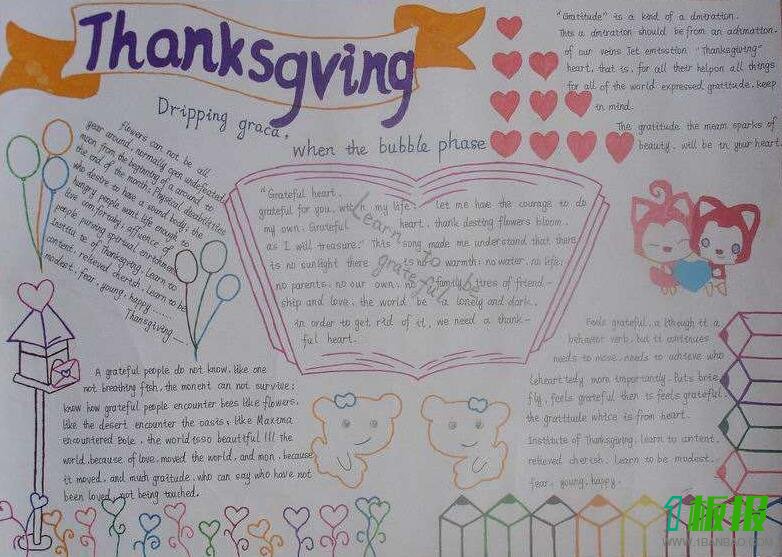 Thanksgving
Dripping graca,
when the bubble phase
"Gratitude" is a kind of a dmiration.
This a dmiration should be from an adimation.
of our veins Jet emission "Thanksgiving"
heart, that is, for all their helpon all things
for all of the world expressed gratitude, keep
in mind.
The gratitude the meam sparks of
beauty. will be in your heart.
flowers can not be all
year around, normally open undefeated
moon from the beginning of a around to
the end of the month; Physical disabilities
who desire to have a sound body, the
hungry people want life enough to
live comfortably; affluence of
people pursing spirirual enrichment
Institu te of Thanksgiving. Learn to
content, relieved cherish. Learn to be
modest. fear, young, happy......
Thansgiving...
"Grateful heart.
grateful for you, with my life, let me have the courage to do
my own; Grateful heart, thank desting flowers bloom,
as I will treasure." This song made me understand that there
is no sunlight there is no warmth; no water, no life;
no parents, no our own, no family, tires of friend-
ship and love, the world be lonely and dark,
in order to get rid of it, we need a thank-
ful heart.
Learn to be
grateful
Feels grateful, a lthough it a
behavior verb, but it continues
needs to move, needs to achieve who
leheart tedy more importantly. Puts brie
fly, feels grateful then is feels grateful
the gratitude whice is from heart.
Institute of Thanksgiving, learn to content,
relieved cherish. Learn to be modest.
fear, young, happy.
A grateful people do not know, like one
not breathing fish, the monent can not survive;
know how grateful people encounter bees like flowers,
like the desert encounter the oasis; like Maxima
encountered Bole, the world isso beautiful !!! the
world, because of love, moved the world, and mon, because
it moved, and much gratitude, who can say who have not
been loyed, not being touched.
1板报
WWW.1BANBAO.COM